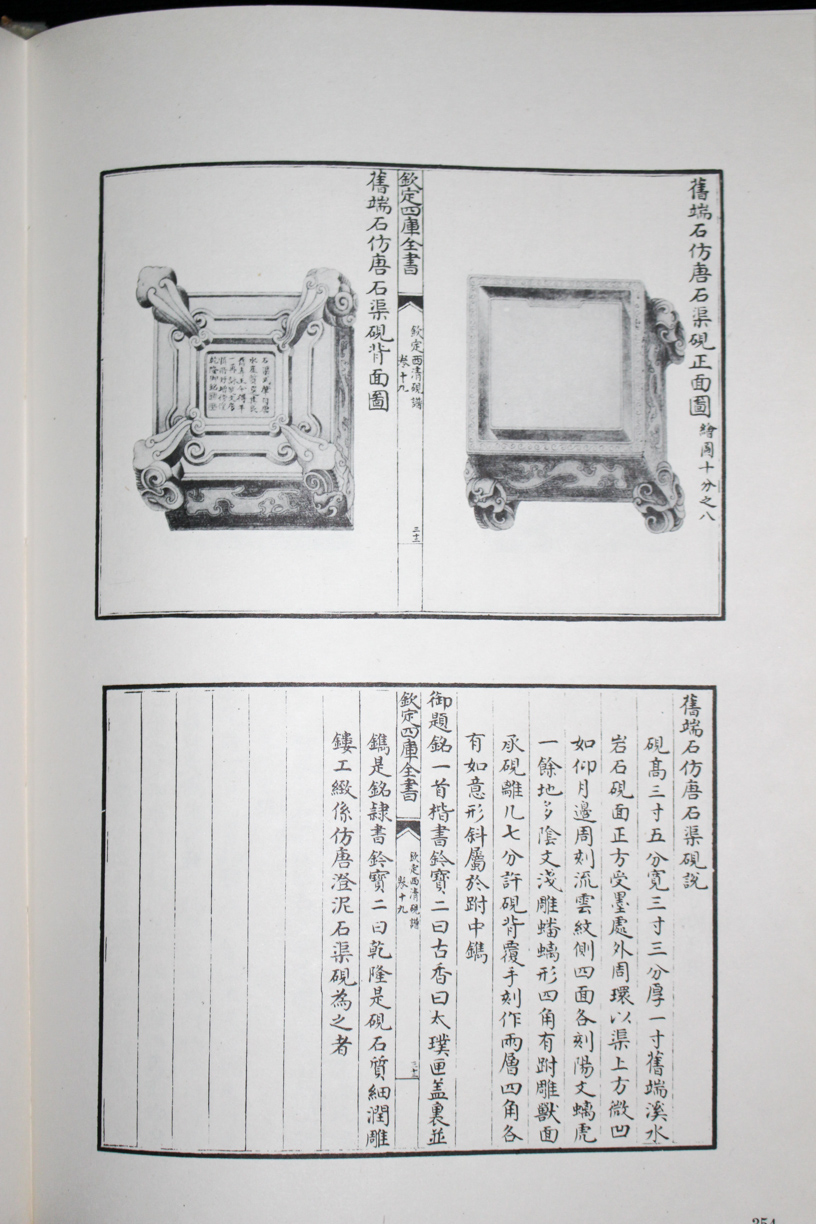 舊端石仿唐石渠硯正面圖 繪圖十分之八
欽定四庫全書
欽定西清硯譜
卷十九
三十二
舊端石仿唐石渠硯背面圖
舊端石仿唐石渠硯說
硯髙三寸五分寛三寸三分厚一寸舊端溪水
岩石硯面正方受墨處外周環以渠上方微凹
如仰月邊周刻流雲紋側四面各刻陽文螭虎
一餘地多陰文淺雕蟠螭形四角有跗雕獸面
承硯離几七分許硯背覆手刻作兩層四角各
有如意形斜屬於跗中鐫
御題銘一首楷書鈐寶二曰古香曰太璞匣盖裏並
欽定四庫全書
欽定西清硯譜
卷十九
鐫是銘隷書鈐寶二曰乾隆是硯石質細潤雕
鏤工緻係仿唐澄泥石渠硯為之者